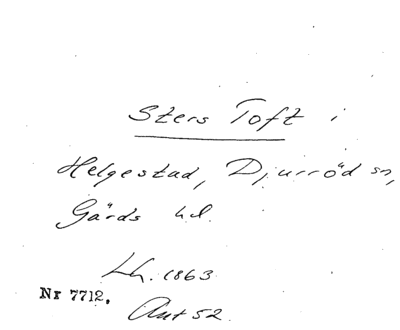 Sters Toft i
Helgestad, Djurröd sn,
Gärds hd.
Lh. 1863
Nr 7712.
Aut 52